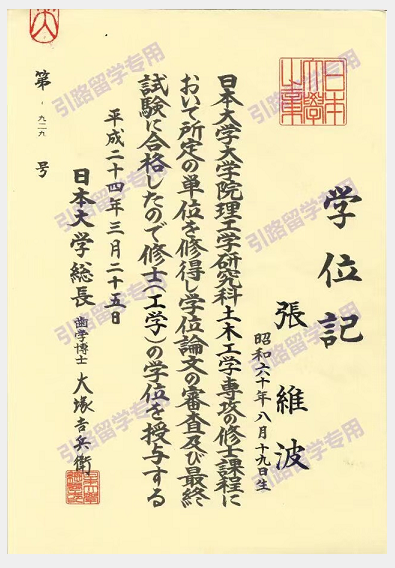 日本
大學
之章
学位記
張維波
昭和六十年八月十九日生
日本大学大学院理工学研究科土木工学専攻の修士課程に
おいて所定の単位を修得し学位論文の審査及び最終
試験に合格したので修士(工学)の学位を授与する
平成二十四年三月二十五日
日本大学総長 歯学博士 大塚吉兵衛
第 号
引路留学专用
引路留学专用
引路留学专用
引路留学专用
引路留学专用
引路留学专用
引路留学专用
引路留学专用